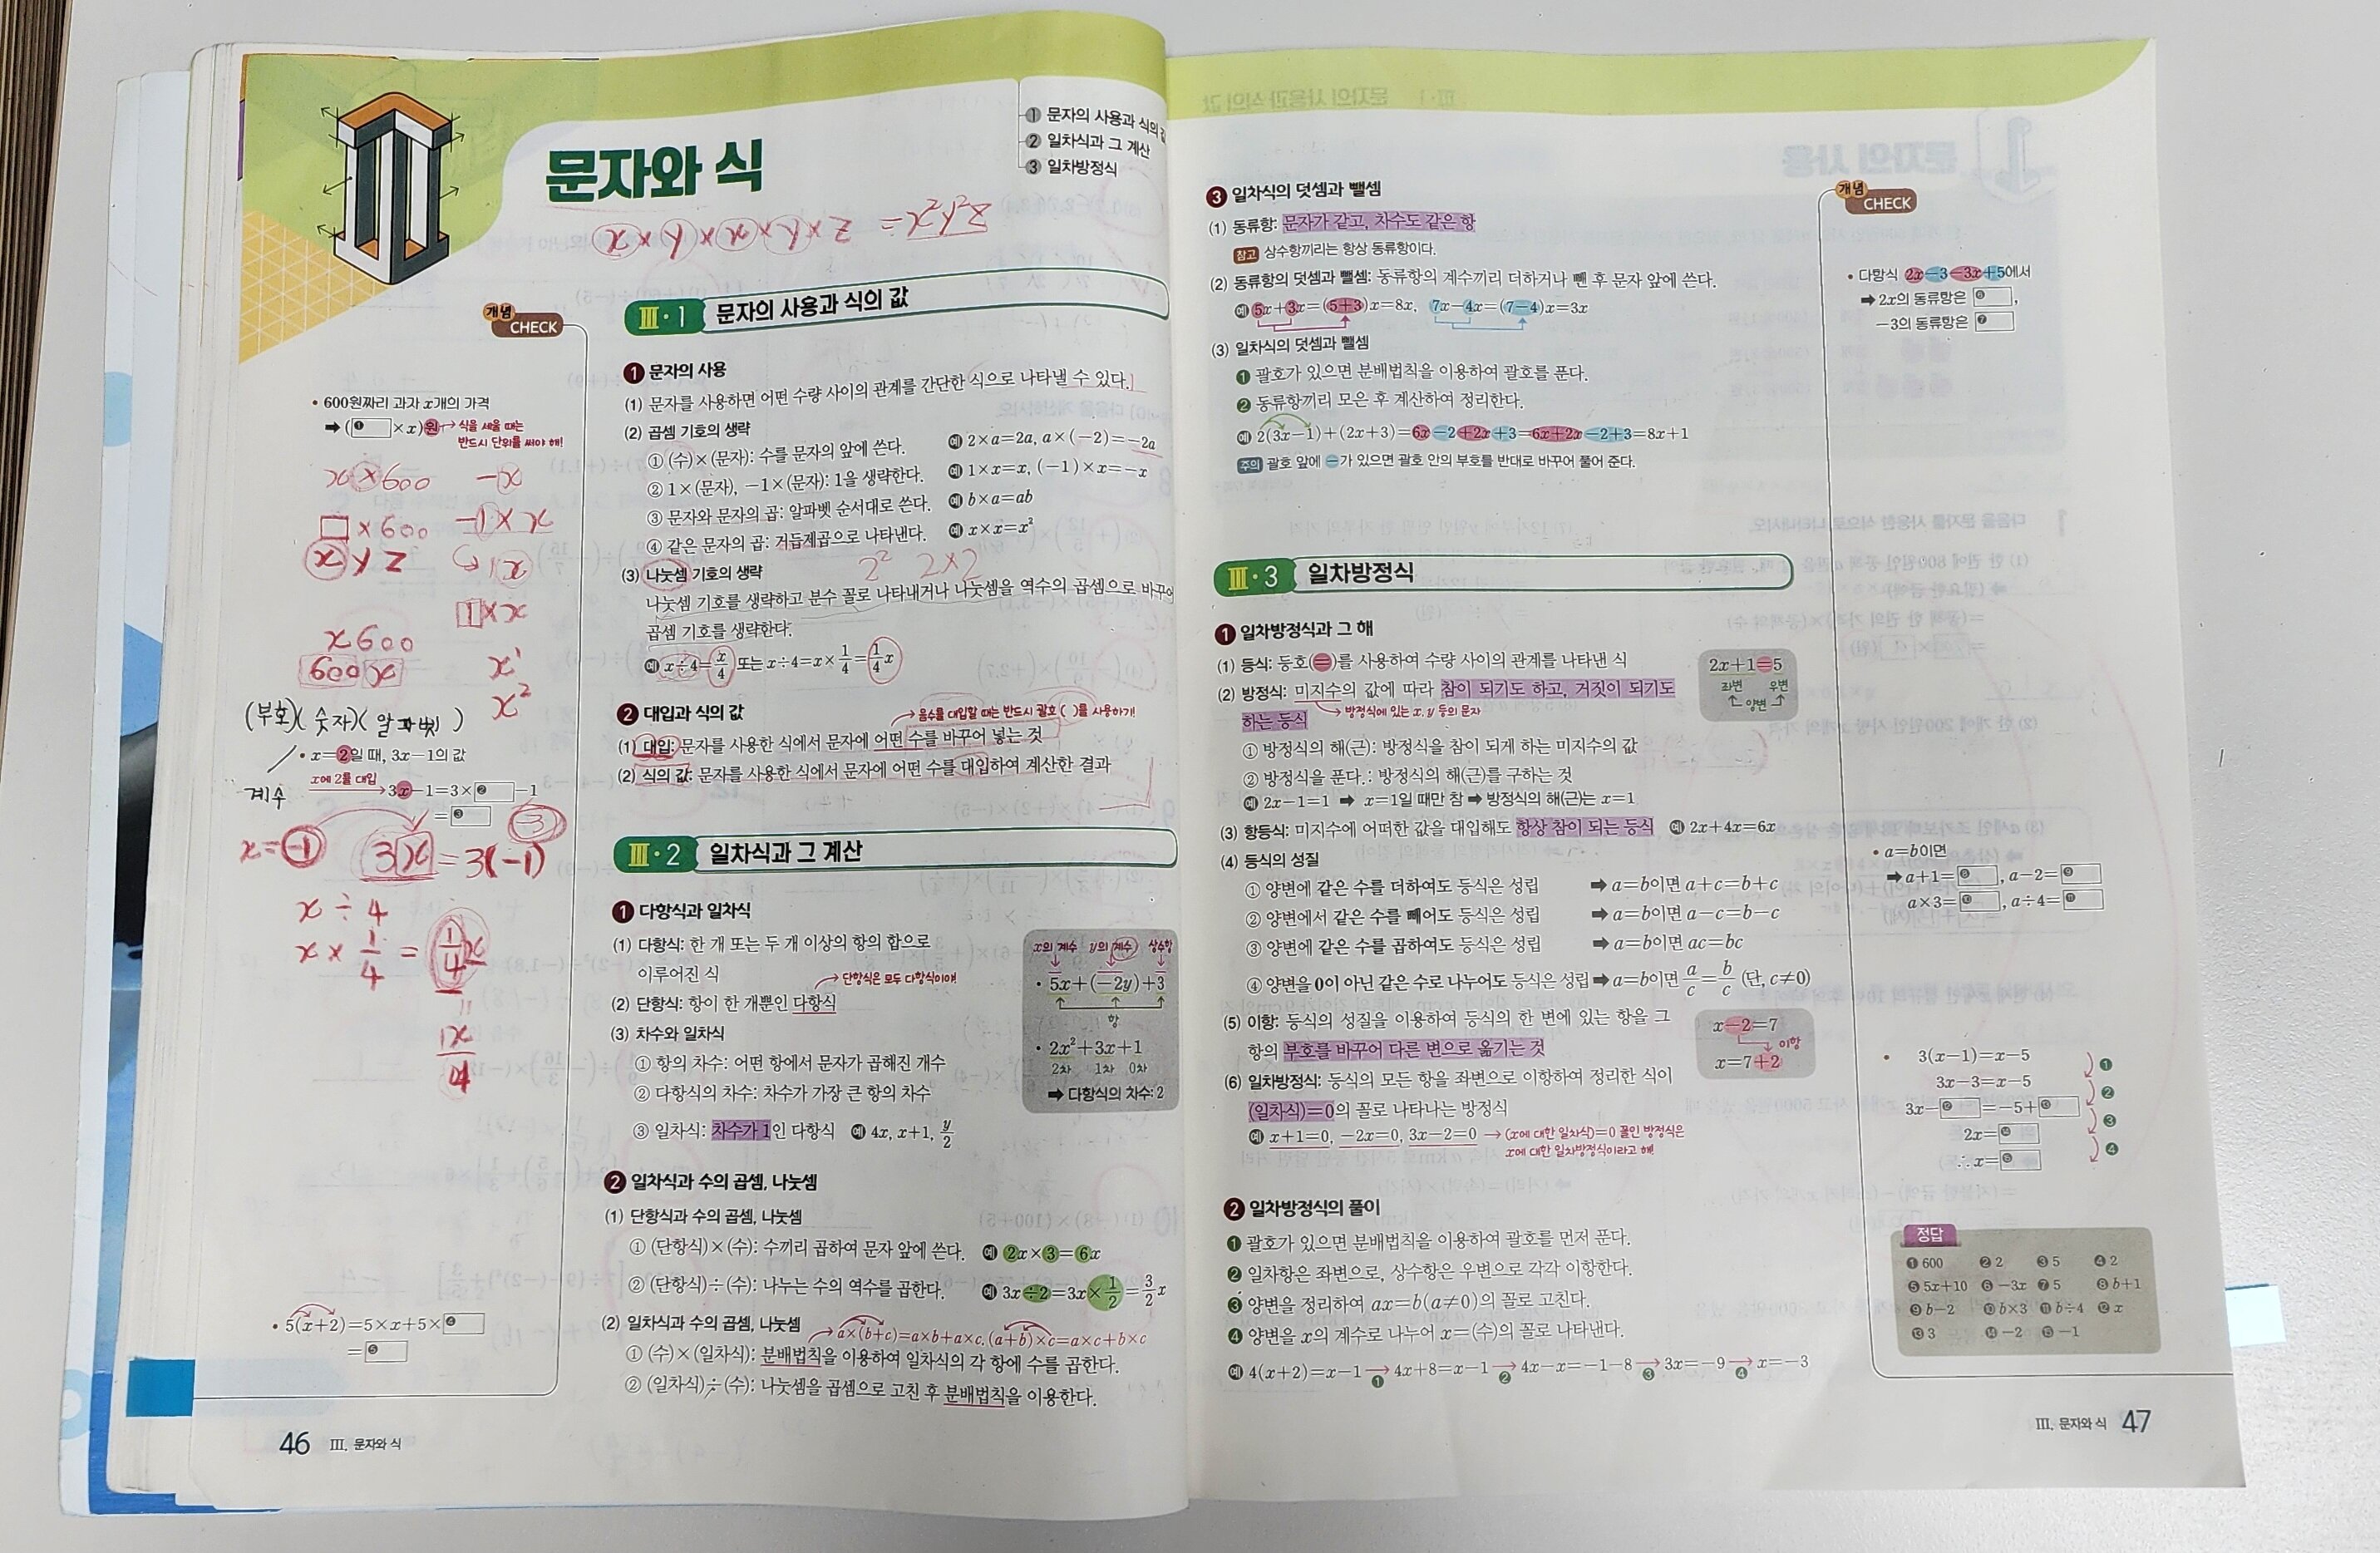 문자와 식
① 문자의 사용과 식의 값
② 일차식과 그 계산
③ 일차방정식
개념 CHECK
• 600원짜리 과자 x개의 가격
➡ (❶□×x)원 → 식을 세울 때는
반드시 단위를 써야 해!
x×600
□×600
x600
600x
-x
1×x
x¹
x²
(부호)(숫자)(알파벳)
계수
• x=2일 때, 3x-1의 값
x에 2를 대입 → 3x-1=3×❷□-1
=❸□
x=-1
3x=3(-1)
-3
x÷4
x×1/4=1/4x
1x/4
• 5(x+2)=5×x+5×❹□
=❺□
46 Ⅲ. 문자와 식
Ⅲ·1 문자의 사용과 식의 값
❶ 문자의 사용
(1) 문자를 사용하면 어떤 수량 사이의 관계를 간단한 식으로 나타낼 수 있다.
(2) 곱셈 기호의 생략
① (수)×(문자): 수를 문자의 앞에 쓴다. 예 2×a=2a, a×(-2)=-2a
② 1×(문자), -1×(문자): 1을 생략한다. 예 1×x=x, (-1)×x=-x
③ 문자와 문자의 곱: 알파벳 순서대로 쓴다. 예 b×a=ab
④ 같은 문자의 곱: 거듭제곱으로 나타낸다. 예 x×x=x²
2² 2×2
(3) 나눗셈 기호의 생략
나눗셈 기호를 생략하고 분수 꼴로 나타내거나 나눗셈을 역수의 곱셈으로 바꾸어
곱셈 기호를 생략한다.
예 x÷4=x/4 또는 x÷4=x×1/4=1/4x
❷ 대입과 식의 값
→ 음수를 대입할 때는 반드시 괄호 ( )를 사용하기!
(1) 대입: 문자를 사용한 식에서 문자에 어떤 수를 바꾸어 넣는 것
(2) 식의 값: 문자를 사용한 식에서 문자에 어떤 수를 대입하여 계산한 결과
Ⅲ·2 일차식과 그 계산
❶ 다항식과 일차식
(1) 다항식: 한 개 또는 두 개 이상의 항의 합으로
이루어진 식
→ 단항식은 모두 다항식이야!
(2) 단항식: 항이 한 개뿐인 다항식
(3) 차수와 일차식
① 항의 차수: 어떤 항에서 문자가 곱해진 개수
② 다항식의 차수: 차수가 가장 큰 항의 차수
③ 일차식: 차수가 1인 다항식 예 4x, x+1, y/2
x의 계수 y의 계수 상수항
• 5x+(-2y)+3
항
• 2x²+3x+1
2차 1차 0차
➡ 다항식의 차수: 2
❷ 일차식과 수의 곱셈, 나눗셈
(1) 단항식과 수의 곱셈, 나눗셈
① (단항식)×(수): 수끼리 곱하여 문자 앞에 쓴다. 예 2x×3=6x
② (단항식)÷(수): 나누는 수의 역수를 곱한다. 예 3x÷2=3x×1/2=3/2x
(2) 일차식과 수의 곱셈, 나눗셈
→ a×(b+c)=a×b+a×c, (a+b)×c=a×c+b×c
① (수)×(일차식): 분배법칙을 이용하여 일차식의 각 항에 수를 곱한다.
② (일차식)÷(수): 나눗셈을 곱셈으로 고친 후 분배법칙을 이용한다.
❸ 일차식의 덧셈과 뺄셈
(1) 동류항: 문자가 같고, 차수도 같은 항
참고 상수항끼리는 항상 동류항이다.
(2) 동류항의 덧셈과 뺄셈: 동류항의 계수끼리 더하거나 뺀 후 문자 앞에 쓴다.
예 5x+3x=(5+3)x=8x, 7x-4x=(7-4)x=3x
(3) 일차식의 덧셈과 뺄셈
❶ 괄호가 있으면 분배법칙을 이용하여 괄호를 푼다.
❷ 동류항끼리 모은 후 계산하여 정리한다.
예 2(3x-1)+(2x+3)=6x-2+2x+3=6x+2x-2+3=8x+1
주의 괄호 앞에 -가 있으면 괄호 안의 부호를 반대로 바꾸어 풀어 준다.
Ⅲ·3 일차방정식
❶ 일차방정식과 그 해
(1) 등식: 등호(=)를 사용하여 수량 사이의 관계를 나타낸 식
(2) 방정식: 미지수의 값에 따라 참이 되기도 하고, 거짓이 되기도
하는 등식 → 방정식에 있는 x, y 등의 문자
2x+1=5
좌변 우변
양변
① 방정식의 해(근): 방정식을 참이 되게 하는 미지수의 값
② 방정식을 푼다.: 방정식의 해(근)를 구하는 것
예 2x-1=1 ➡ x=1일 때만 참 ➡ 방정식의 해(근)는 x=1
(3) 항등식: 미지수에 어떠한 값을 대입해도 항상 참이 되는 등식 예 2x+4x=6x
(4) 등식의 성질
① 양변에 같은 수를 더하여도 등식은 성립 ➡ a=b이면 a+c=b+c
② 양변에서 같은 수를 빼어도 등식은 성립 ➡ a=b이면 a-c=b-c
③ 양변에 같은 수를 곱하여도 등식은 성립 ➡ a=b이면 ac=bc
④ 양변을 0이 아닌 같은 수로 나누어도 등식은 성립 ➡ a=b이면 a/c=b/c (단, c≠0)
(5) 이항: 등식의 성질을 이용하여 등식의 한 변에 있는 항을 그
항의 부호를 바꾸어 다른 변으로 옮기는 것
x-2=7
이항
x=7+2
(6) 일차방정식: 등식의 모든 항을 좌변으로 이항하여 정리한 식이
(일차식)=0의 꼴로 나타나는 방정식
예 x+1=0, -2x=0, 3x-2=0 → (x에 대한 일차식)=0 꼴인 방정식은
x에 대한 일차방정식이라고 해!
❷ 일차방정식의 풀이
❶ 괄호가 있으면 분배법칙을 이용하여 괄호를 먼저 푼다.
❷ 일차항은 좌변으로, 상수항은 우변으로 각각 이항한다.
❸ 양변을 정리하여 ax=b(a≠0)의 꼴로 고친다.
❹ 양변을 x의 계수로 나누어 x=(수)의 꼴로 나타낸다.
예 4(x+2)=x-1 →❶ 4x+8=x-1 →❷ 4x-x=-1-8 →❸ 3x=-9 →❹ x=-3
개념 CHECK
• 다항식 2x-3-3x+5에서
➡ 2x의 동류항은 ❻□,
-3의 동류항은 ❼□
• a=b이면
➡ a+1=❽□, a-2=❾□
a×3=❿□, a÷4=⓫□
• 3(x-1)=x-5 ❶
3x-3=x-5 ❷
3x-⓬□=-5+⓭□ ❸
2x=⓮□ ❹
∴ x=⓯□
정답
❶ 600 ❷ 2 ❸ 5 ❹ 2
❺ 5x+10 ❻ -3x ❼ 5 ❽ b+1
❾ b-2 ❿ b×3 ⓫ b÷4 ⓬ x
⓭ 3 ⓮ -2 ⓯ -1
Ⅲ. 문자와 식 47